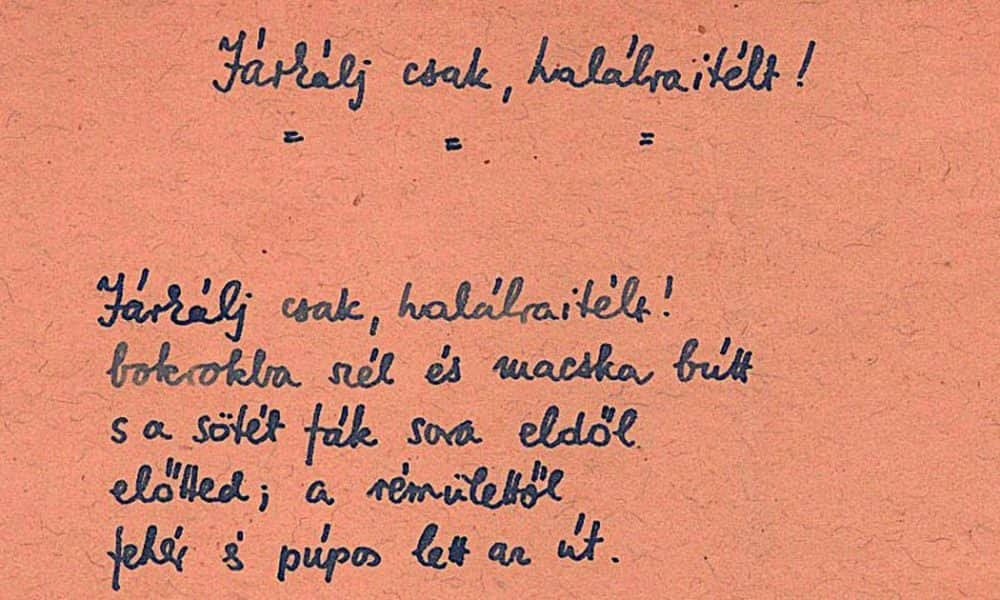 Járkálj csak, halálraitélt!
= = =
Járkálj csak, halálraitélt!
bokrokba szél és macska bútt
s a sötét fák sora eldől
előtted; a rémülettől
fehér s púpos lett az út.